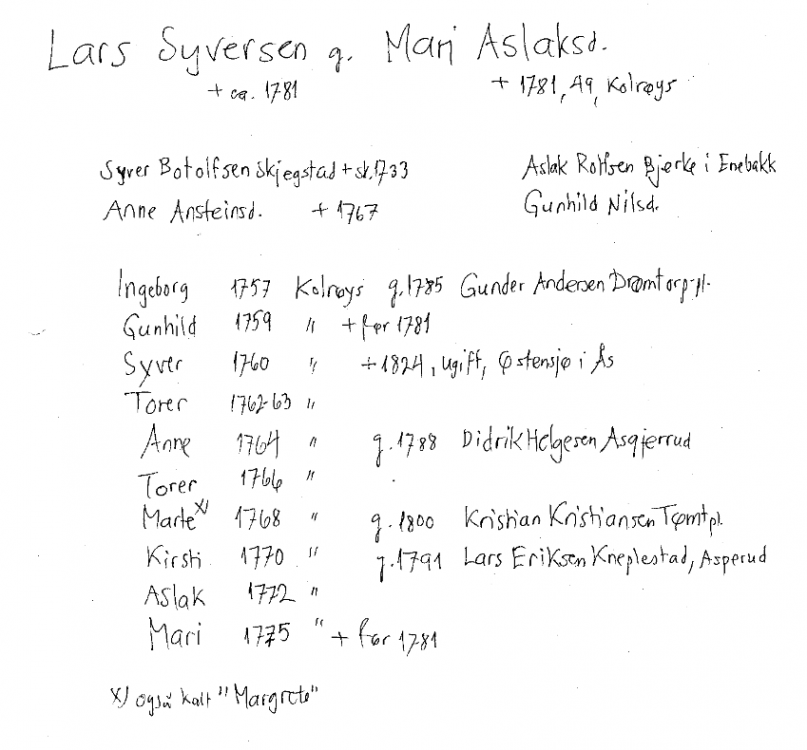 Lars Syversen g. Mari Aslaksd.
+ ca. 1781 + 1781, 49, Kolrøys
Syver Botolfsen Skjegstad + sk.1733 Aslak Rolfsen Bjerke i Enebakk
Anne Ansteinsd. + 1767 Gunhild Nilsd.
Ingeborg 1757 Kolrøys g.1785 Gunder Andersen Drømtorp-pl.
Gunhild 1759 " + før 1781
Syver 1760 " + 1824, ugift, Østensjø i Ås
Torer 1762-63 "
Anne 1764 " g.1788 Didrik Helgesen Asgjerrud
Torer 1766 "
Marte x) 1768 " g.1800 Kristian Kristiansen Tømtpl.
Kirsti 1770 " g.1791 Lars Eriksen Kneplestad, Asperud
Aslak 1772 "
Mari 1775 " + før 1781
x) også kalt "Margrete"